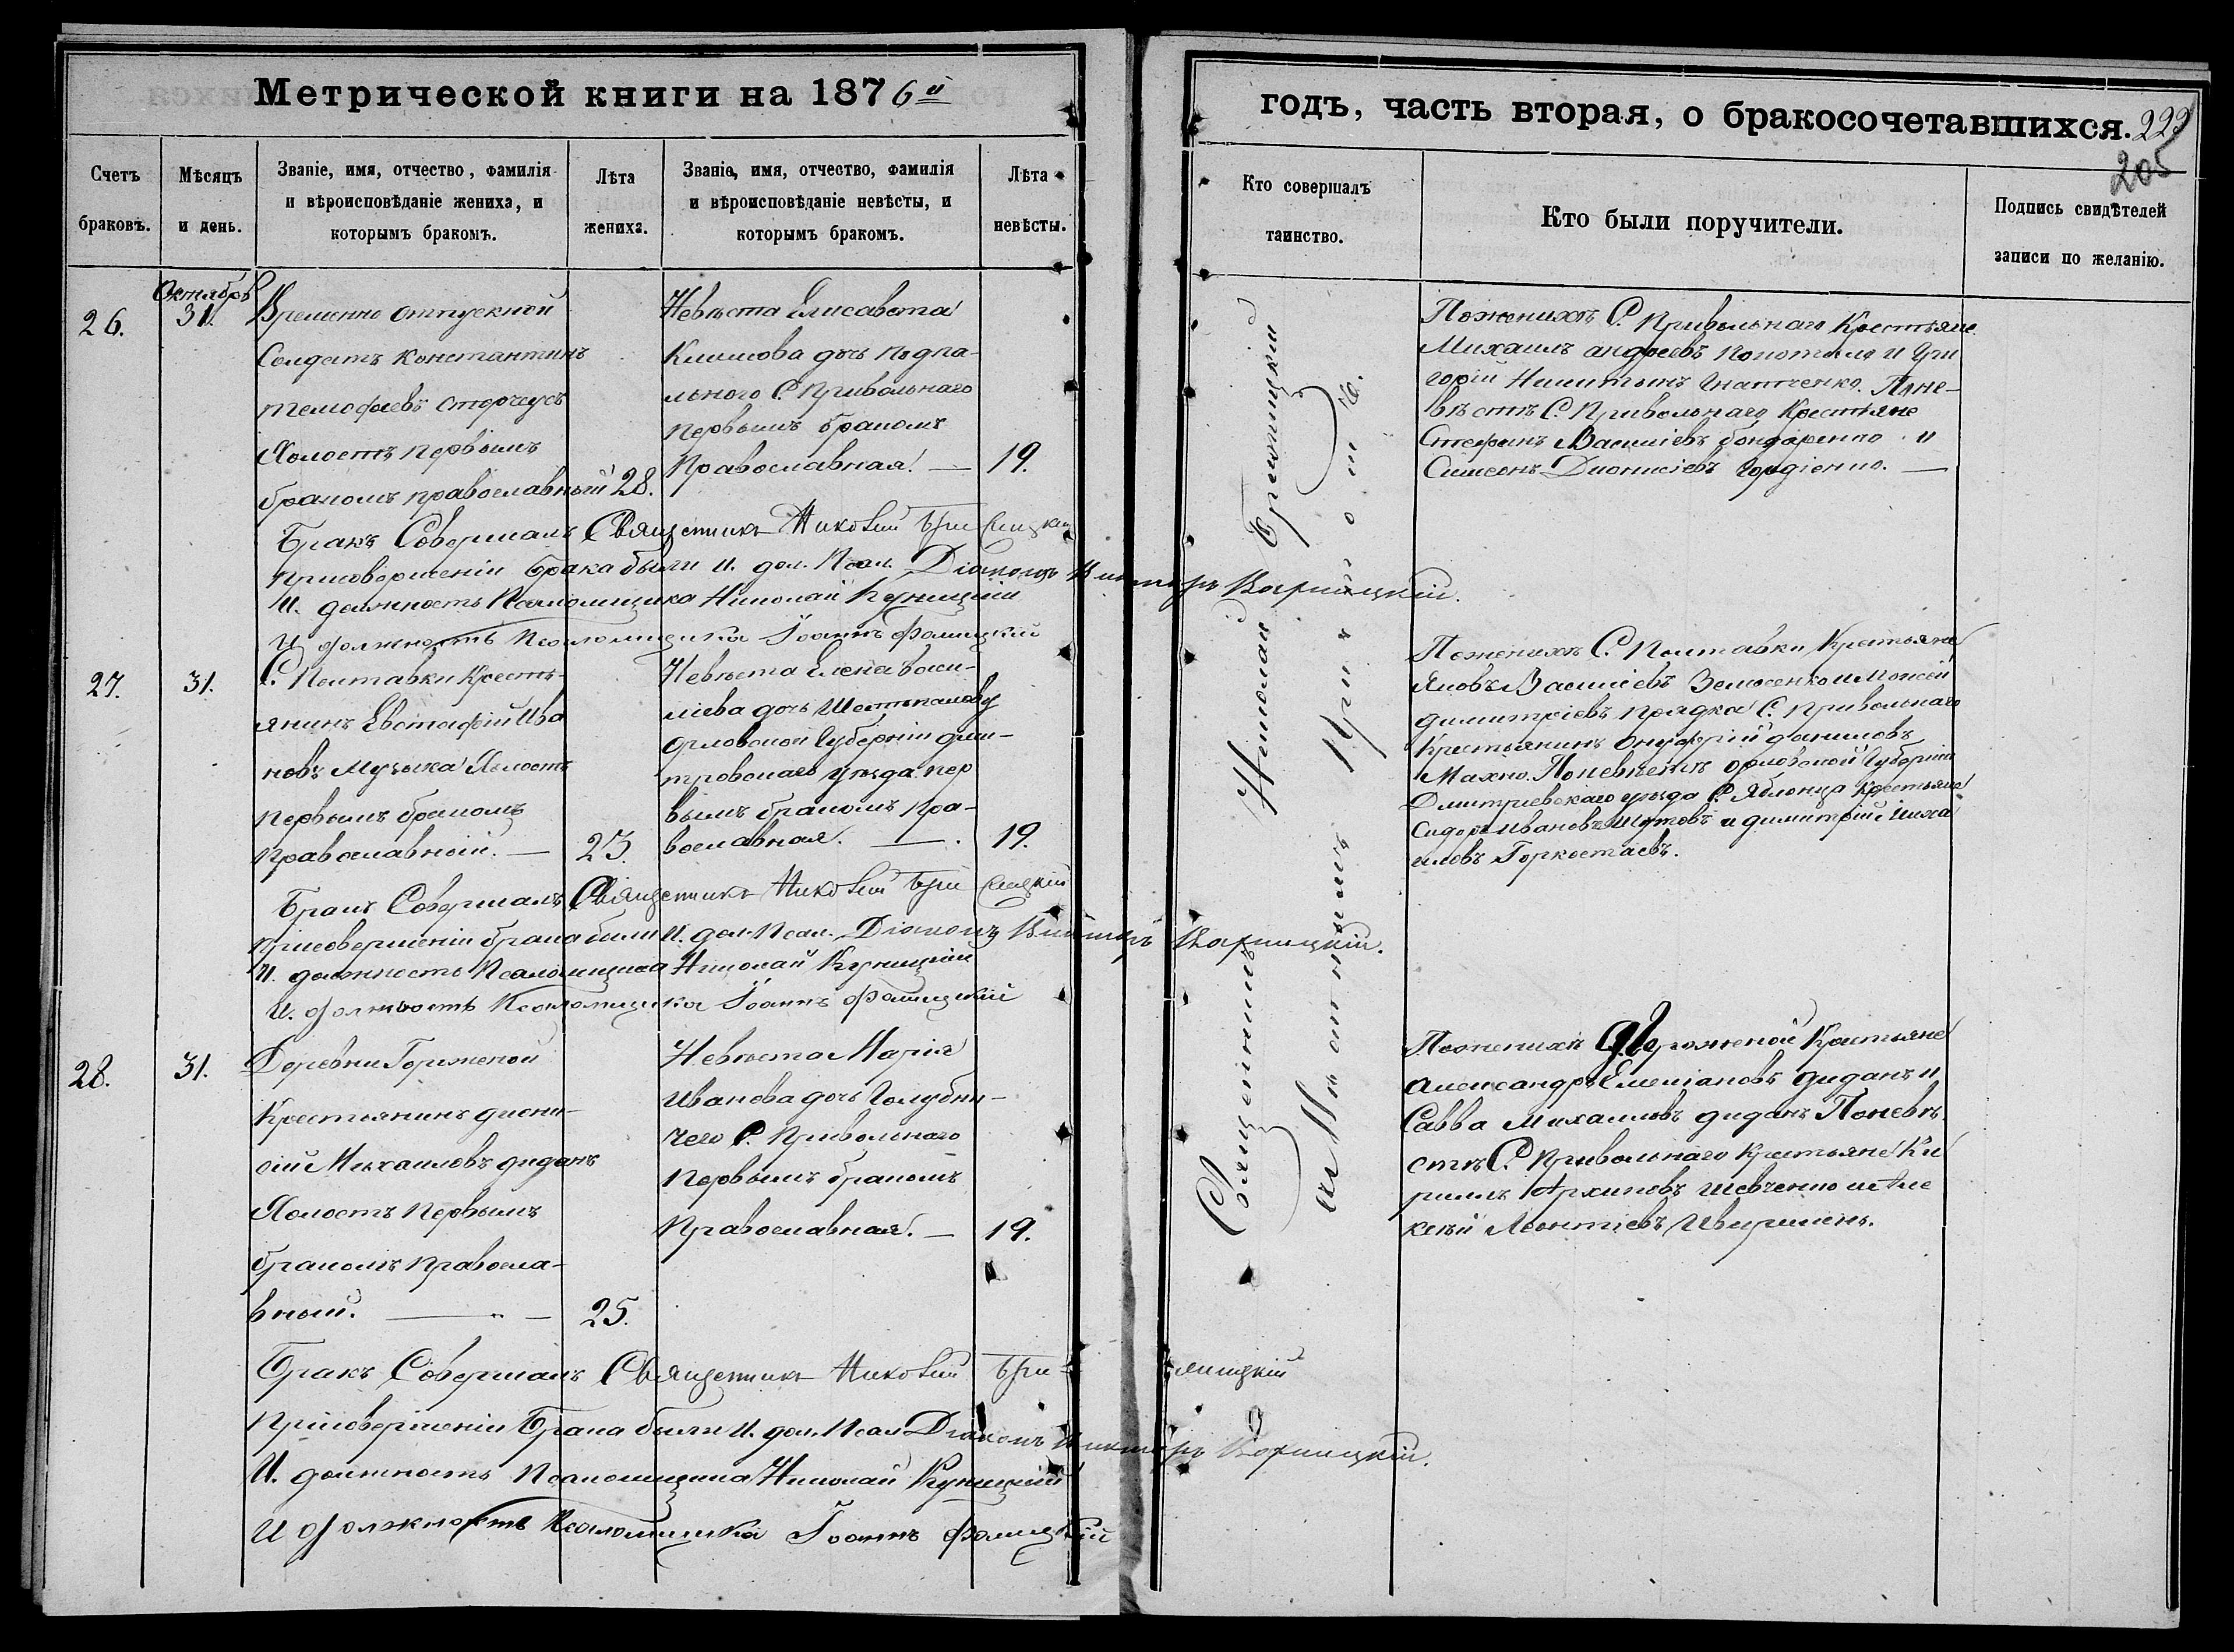 Метрической книги на 1876й
годъ, часть вторая, о бракосочетавшихся.
229
205
Счетъ браковъ.
Мѣсяцъ и день.
Званіе, имя, отчество, фамилія
и вѣроисповѣданіе жениха, и
которымъ бракомъ.
Лѣта жениха.
Званіе, имя, отчество, фамилія
и вѣроисповѣданіе невѣсты, и
которымъ бракомъ.
Лѣта невѣсты.
Кто совершалъ
таинство.
Кто были поручители.
Подпись свидѣтелей
записи по желанію.
26.
Октябрь
31.
Временно отпускной
Солдатъ Константинъ
Тимофеевъ Сторчеусъ
Холостъ первымъ
бракомъ православный 28.
Невѣста Елисавета
Климова дочь Подпа-
льного С. Привольнаго
первымъ бракомъ
Православная. — 19.
Поженихѣ С. Привольнаго Крестьяне
Михаилъ Андреевъ и Гри
горій Никитинъ Игнатченко. Поне-
вѣстѣ С. Привольнаго Крестьяне
Стефанъ Василіевъ Бондаренко и
Симеонъ Діонисіевъ Гордіенко. —
Бракъ Совершалъ Священникъ Николай
Присовершеніи брака были И. дол. Псал. Діаконъ Викторъ Варницкій.
И. должность Псаломщика Николай Куницкій
И должность Псаломщика Іоаннъ Фалицкій
27.
31.
С. Полтавки Кресть-
янинъ Евстафій Ива
новъ Музыка Холостъ
первымъ бракомъ
Православный. — 23.
Невѣста Елена Васи-
ліева дочь
Орловской Губерніи Дми-
тровскаго уѣзда пер
вымъ бракомъ Пра-
вославная. — . 19.
Поженихѣ С. Полтавки Крестьяне
Яковъ Василіевъ и Моисей
Димитріевъ Прядка С. Привольнаго
Крестьянинъ Онуфрій Даниловъ
Махно. Поневѣстѣ Орловской Губерніи
Дмитріевскаго уѣзда С. Яблонца Крестьяне
Сидоръ Ивановъ Шутовъ и Димитрій Миха
иловъ Горностаевъ.
Бракъ Совершалъ Священникъ Николай
Присовершеніи брака были И. дол. Псал. Діаконъ Викторъ Варницкій.
И. должность Псаломщика Николай Куницкій
И. должность Псаломщика Іоаннъ Фалицкій
28.
31.
Деревни Горожепой
Крестьянинъ Діони-
сій Михаиловъ Диданъ
Холостъ Первымъ
бракомъ Правосла-
вный. — 25.
Невѣста Марія
Иванова дочь Голубни-
чего С. Привольнаго
Первымъ бракомъ
Православная. — 19.
Поженихѣ Крестьяне
Александръ Емеліановъ Диданъ и
Савва Михаиловъ Диданъ Поневѣ
стѣ С. Привольнаго Крестьяне Ки
риллъ Архиповъ Шевченко и Але
ксѣй Леонтіевъ
Бракъ Совершалъ Священникъ Николай
Присовершеніи Брака были И. дол. Псал. Діаконъ Викторъ Варницкій.
И. должность Псаломщика Николай Куницкій
И должность Псаломщика Іоаннъ Фалицкій
Священникъ Николай